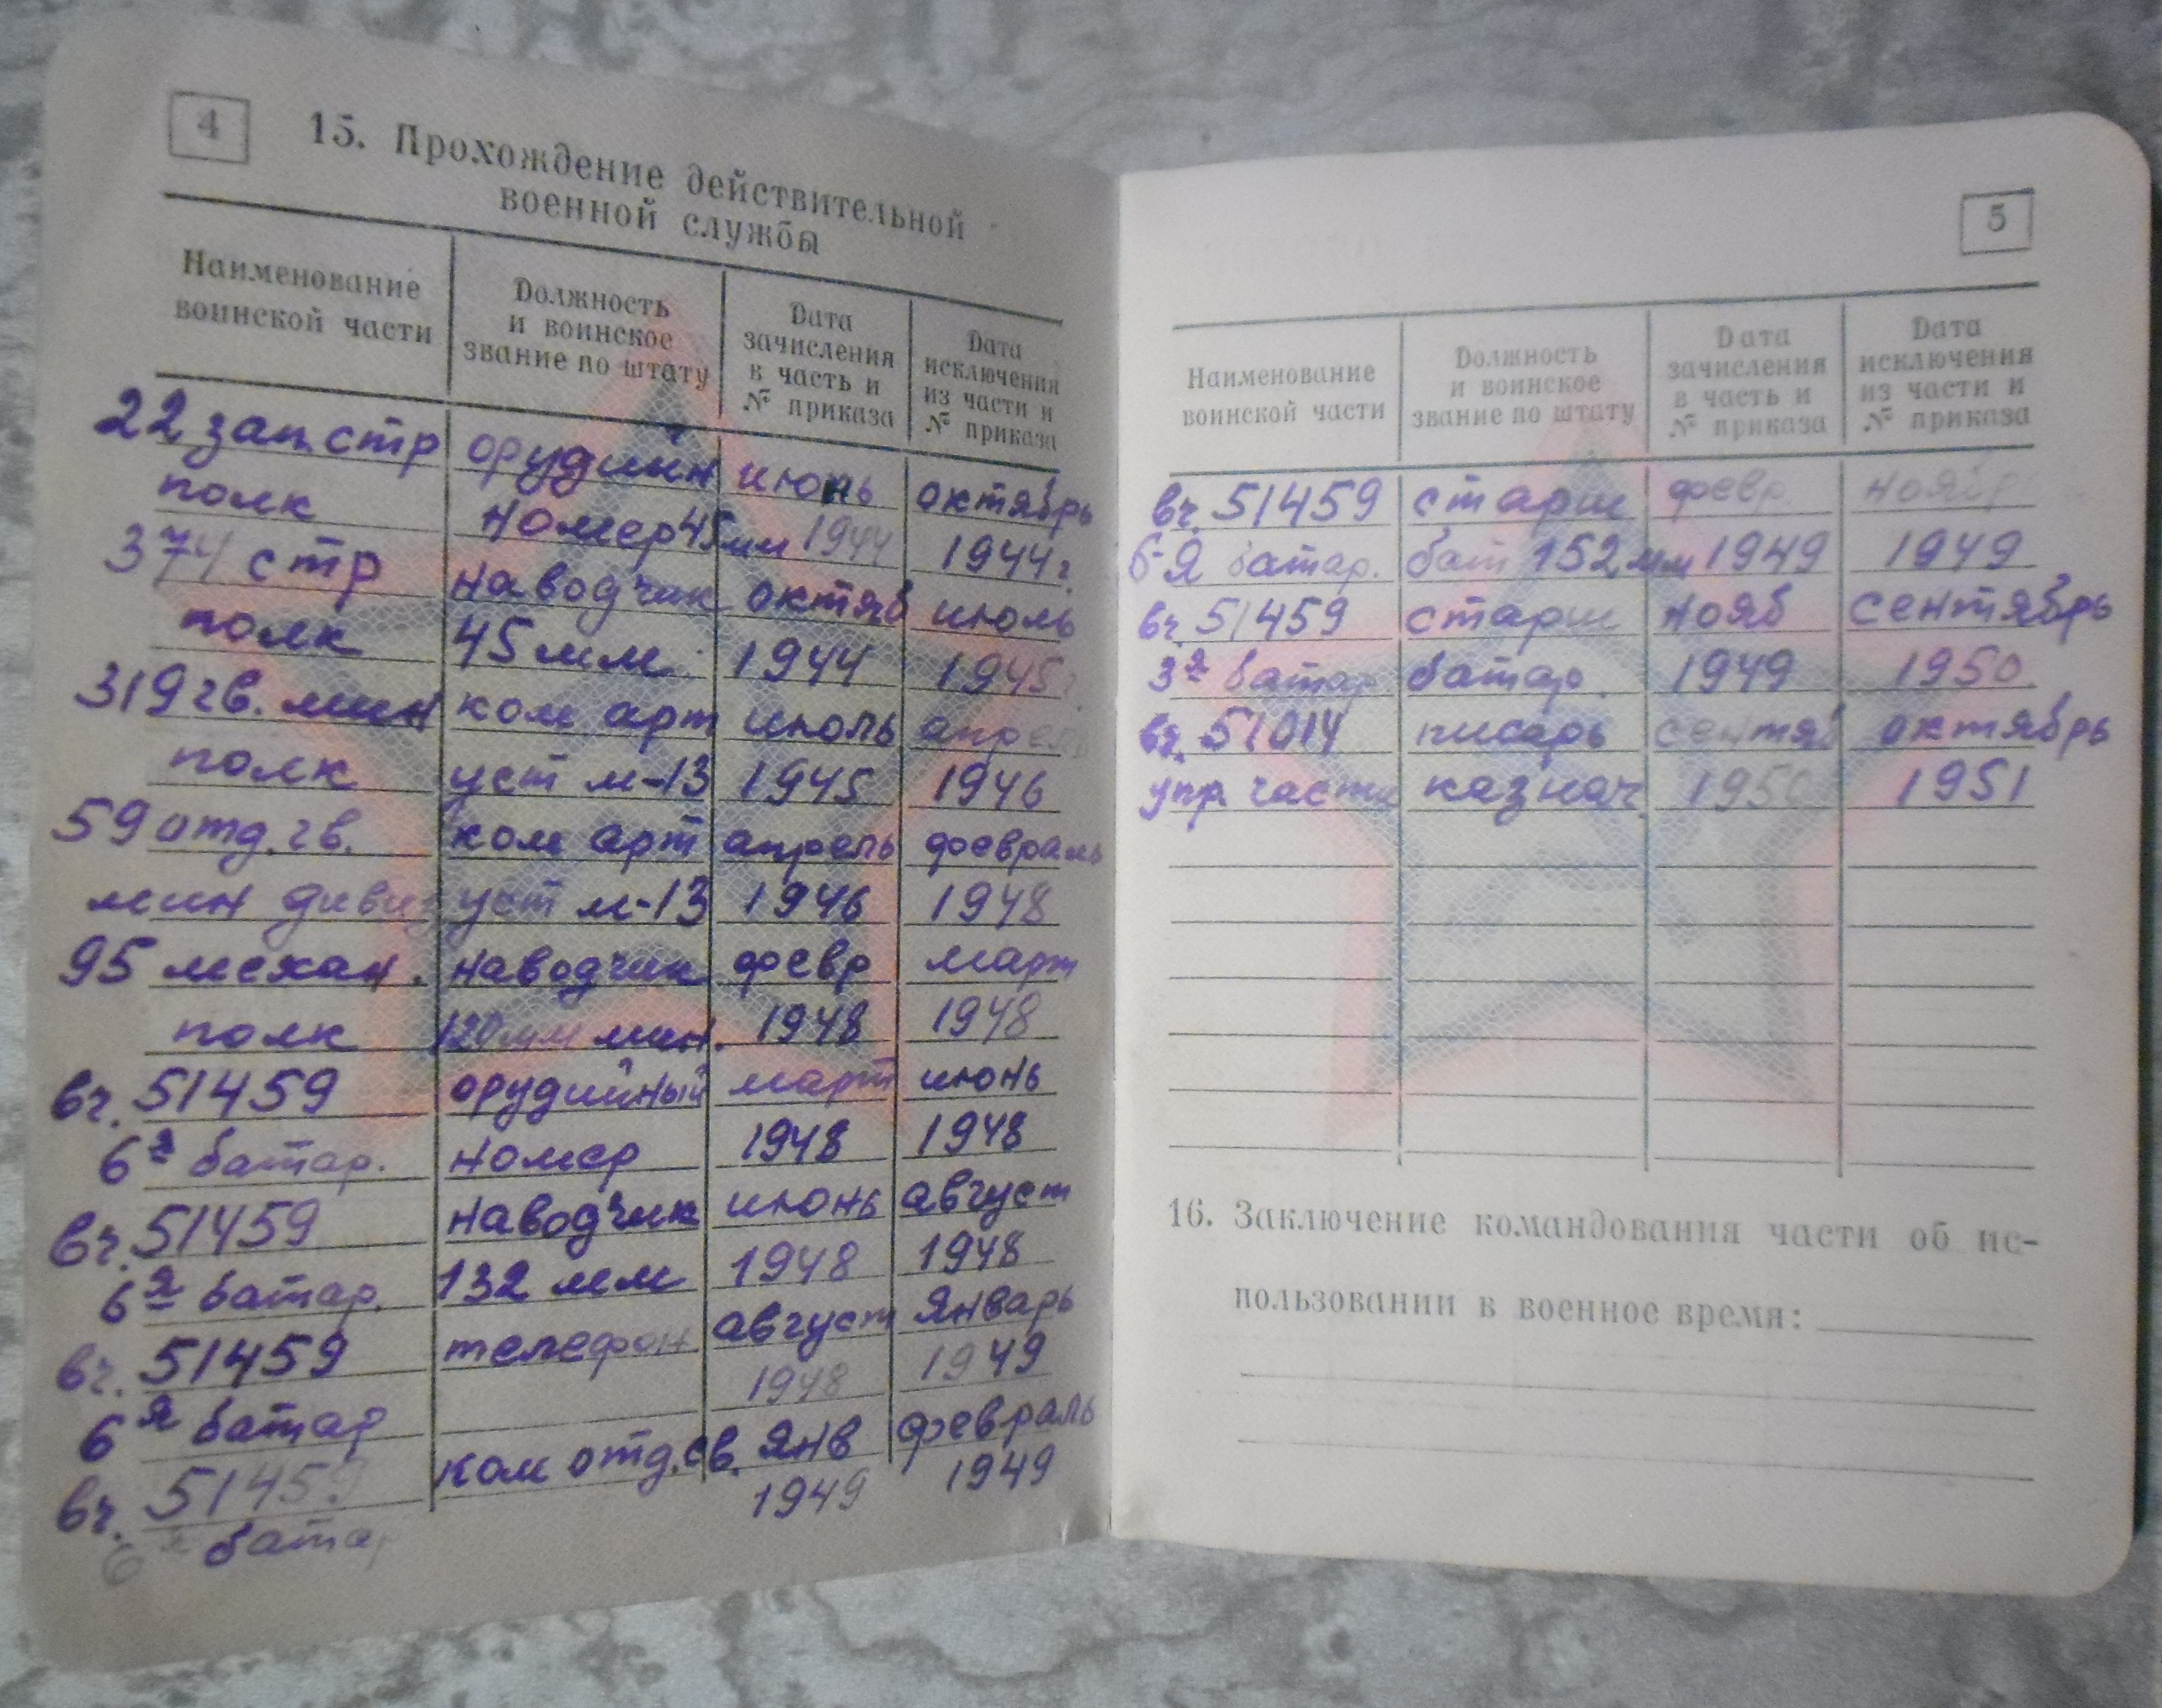 4
15. Прохождение действительной
военной службы
Наименование воинской части
Должность и воинское звание по штату
Дата зачисления в часть и № приказа
Дата исключения из части и № приказа
22 зап. стр орудийн июнь октябрь
полк номер 45 мм 1944 1944 г.
374 стр наводчик октяб июль
полк 45 мм. 1944 1945
319 гв. мин ком арт июль апрель
полк уст м-13 1945 1946
59 отд. гв. ком арт апрель февраль
мин дивиз уст м-13 1946 1948
95 механ. наводчик февр март
полк 120 мм мин. 1948 1948
вч. 51459 орудийный март июнь
6я батар. номер 1948 1948
вч. 51459 наводчик июнь август
6я батар. 132 мм 1948 1948
вч. 51459 телефон август январь
6я батар 1948 1949
вч. 51459 ком отд. св. янв февраль
6я батар 1949 1949
5
Наименование воинской части
Должность и воинское звание по штату
Дата зачисления в часть и № приказа
Дата исключения из части и № приказа
вч. 51459 старш февр ноябр
6-я батар. бат 152 мм 1949 1949
вч 51459 старш нояб сентябрь
3я батар батар. 1949 1950.
вч. 51014 писарь сентяб октябрь
упр. части казнач. 1950 1951
16. Заключение командования части об ис-
пользовании в военное время: